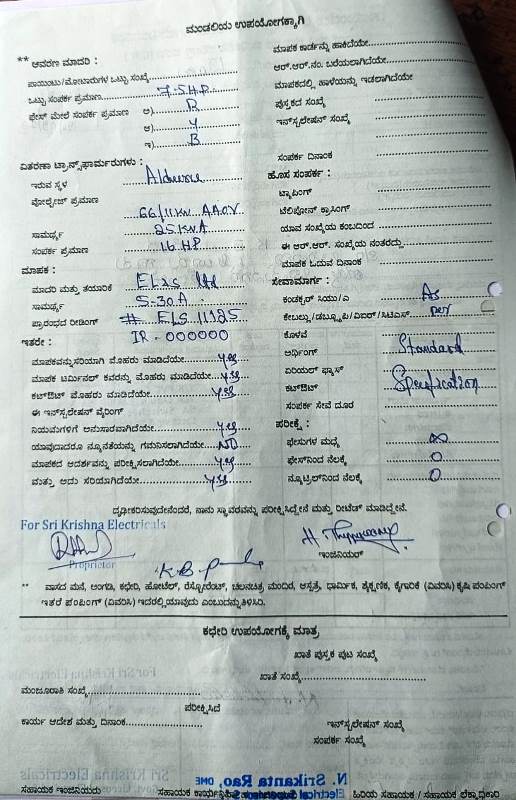 ಮಂಡಲಿಯ ಉಪಯೋಗಕ್ಕಾಗಿ
** ಆವರಣ ಮಾದರಿ :
ಪಾಯಿಂಟು/ಮೋಟಾರುಗಳ ಒಟ್ಟು ಸಂಖ್ಯೆ
ಒಟ್ಟು ಸಂಪರ್ಕ ಪ್ರಮಾಣ 7.5HP
ಫೇಸ್ ಮೇಲೆ ಸಂಪರ್ಕ ಪ್ರಮಾಣ ಅ) R
ಆ) Y
ಇ) B
ವಿತರಣಾ ಟ್ರಾನ್ಸ್‌ಫಾರ್ಮರುಗಳು :
ಇರುವ ಸ್ಥಳ
ವೋಲ್ಟೇಜ್ ಪ್ರಮಾಣ
66/11KV
ಸಾಮರ್ಥ್ಯ 25KVA
ಸಂಪರ್ಕ ಪ್ರಮಾಣ 16 HP
ಮಾಪಕ :
ಮಾದರಿ ಮತ್ತು ತಯಾರಿಕೆ ltd
ಸಾಮರ್ಥ್ಯ 5-30A
ಪ್ರಾರಂಭದ ರೀಡಿಂಗ್ # ELS 11125
ಇತರೇ : IR-000000
ಮಾಪಕವನ್ನು ಸರಿಯಾಗಿ ಮೊಹರು ಮಾಡಿದೆಯೇ yes
ಮಾಪಕ ಟರ್ಮಿನಲ್ ಕವರನ್ನು ಮೊಹರು ಮಾಡಿದೆಯೇ yes
ಕಟ್‌ಔಟ್ ಮೊಹರು ಮಾಡಿದೆಯೇ yes
ಈ ಇನ್‌ಸ್ಟಲೇಷನ್ ವೈರಿಂಗ್
ನಿಯಮಗಳಿಗೆ ಅನುಸಾರವಾಗಿದೆಯೇ yes
ಯಾವುದಾದರೂ ನ್ಯೂನತೆಯನ್ನು ಗಮನಿಸಲಾಗಿದೆಯೇ NO
ಮಾಪಕದ ಆದರ್ಶವನ್ನು ಪರೀಕ್ಷಿಸಲಾಗಿದೆಯೇ yes
ಮತ್ತು ಅದು ಸರಿಯಾಗಿದೆಯೇ yes
ಮಾಪಕ ಕಾರ್ಡನ್ನು ಹಾಕಿದೆಯೇ
ಆರ್.ಆರ್.ನಂ. ಬರೆಯಲಾಗಿದೆಯೇ
ಮಾಪಕದಲ್ಲಿ ಹಾಳೆಯನ್ನು ಇಡಲಾಗಿದೆಯೇ
ಪುಸ್ತಕದ ಸಂಖ್ಯೆ
ಇನ್‌ಸ್ಟಲೇಷನ್ ಸಂಖ್ಯೆ
ಸಂಪರ್ಕ ದಿನಾಂಕ
ಹೊಸ ಸಂಪರ್ಕ :
ಟ್ಯಾಪಿಂಗ್
ಟೆಲಿಫೋನ್ ಕ್ರಾಸಿಂಗ್
ಯಾವ ಸಂಖ್ಯೆಯ ಕಂಬದಿಂದ
ಈ ಆರ್.ಆರ್. ಸಂಖ್ಯೆಯ ನಂತರದ್ದು
ಮಾಪಕ ಓದುವ ದಿನಾಂಕ
ಸೇವಾಮಾರ್ಗ :
ಕಂಡಕ್ಟರ್ ಸಿಯು/ಎ As
ಕೇಬಲ್ಲು/ಡಬ್ಲ್ಯೂಪಿ/ವಿಐಆರ್/ಸಿಟಿಎಸ್ per
ಕೊಳವೆ
ಅರ್ಥಿಂಗ್ Standard
ಏರಿಯಲ್ ಫ್ಯೂಸ್
ಕಟ್‌ಔಟ್ Specification
ಸಂಪರ್ಕ ಸೇವೆ ದೂರ
ಪರೀಕ್ಷೆ :
ಫೇಸುಗಳ ಮಧ್ಯೆ ∞
ಫೇಸ್‌ನಿಂದ ನೆಲಕ್ಕೆ 0
ನ್ಯೂಟ್ರಲ್‌ನಿಂದ ನೆಲಕ್ಕೆ 0
ದೃಢೀಕರಿಸುವುದೇನೆಂದರೆ, ನಾನು ಸ್ಥಾವರವನ್ನು ಪರೀಕ್ಷಿಸಿದ್ದೇನೆ ಮತ್ತು ರೀಟೆಡ್ ಮಾಡಿದ್ದೇನೆ.
For Sri Krishna Electricals
Proprietor
ಇಂಜಿನಿಯರ್
** ವಾಸದ ಮನೆ, ಅಂಗಡಿ, ಕಛೇರಿ, ಹೋಟೆಲ್, ರೆಸ್ಟೋರೆಂಟ್, ಚಲನಚಿತ್ರ ಮಂದಿರ, ಆಸ್ಪತ್ರೆ, ಧಾರ್ಮಿಕ, ಶೈಕ್ಷಣಿಕ, ಕೈಗಾರಿಕೆ (ವಿವರಿಸಿ) ಕೃಷಿ ಪಂಪಿಂಗ್
ಇತರೆ ಪಂಪಿಂಗ್ (ವಿವರಿಸಿ) ಇದರಲ್ಲಿ ಯಾವುದು ಎಂಬುದನ್ನು ತಿಳಿಸಿರಿ.
ಕಛೇರಿ ಉಪಯೋಗಕ್ಕೆ ಮಾತ್ರ
ಖಾತೆ ಪುಸ್ತಕ ಪುಟ ಸಂಖ್ಯೆ
ಖಾತೆ ಸಂಖ್ಯೆ
ಮಂಜೂರಾತಿ ಸಂಖ್ಯೆ
ಪರೀಕ್ಷಿಸಿದೆ
ಕಾರ್ಯ ಆದೇಶ ಮತ್ತು ದಿನಾಂಕ
ಇನ್‌ಸ್ಟಲೇಷನ್ ಸಂಖ್ಯೆ
ಸಂಪರ್ಕ ಸಂಖ್ಯೆ
N. Srikanta Rao, DME
Sri Krishna Electricals
ಸಹಾಯಕ ಇಂಜಿನಿಯರು
ಹಿರಿಯ ಸಹಾಯಕ / ಸಹಾಯಕ ಲೆಕ್ಕಾಧಿಕಾರಿ